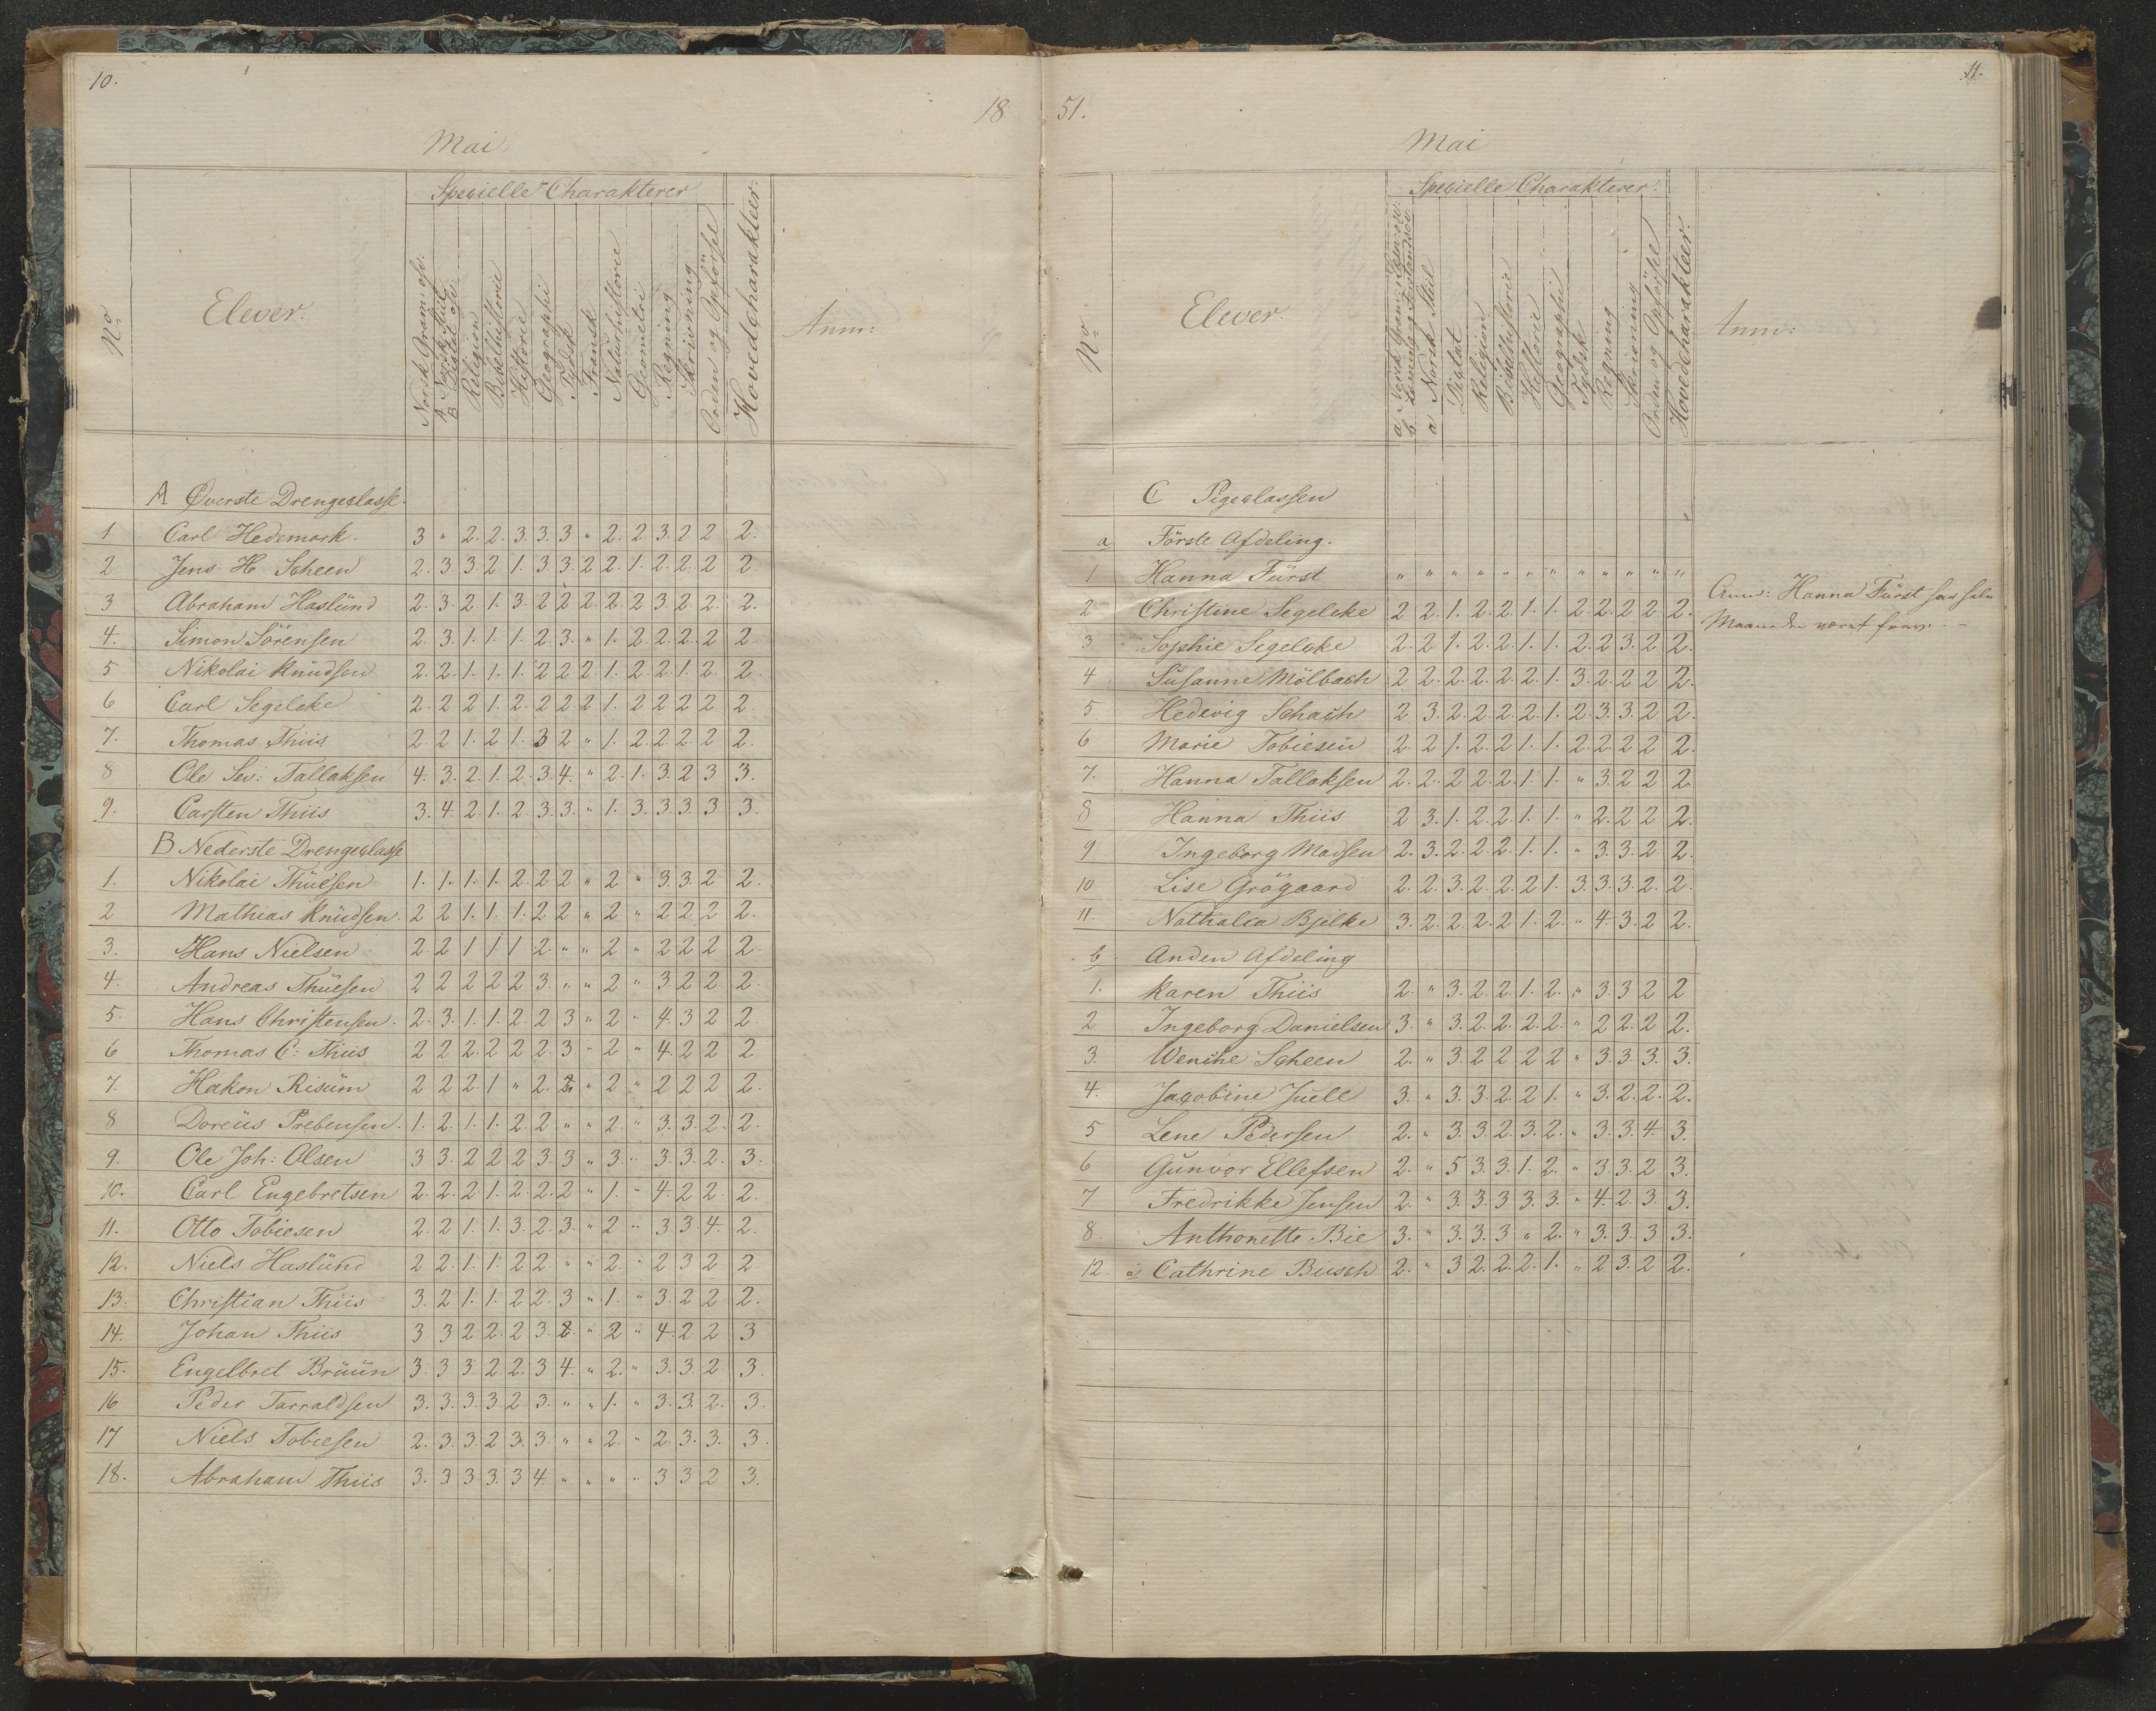 10.
18
Mai
No
Elever.
Specielle Charakterer
Norsk Gram: osv.
A Norsk Stiil
B Diktat osv.
Religion
Bibelhistorie
Historie
Geographi
Tydsk
Fransk
Naturhistorie
Geometri
Regning
Skrivning
Orden og Opförsel
Hovedcharakteer.
Anm:
A Överste Drengeclasse.
1 Carl Hedemark. 3 " 2. 2. 3. 3. 3 " 2. 2. 3. 2 2 2.
2 Jens H. Scheen 2. 3 3. 2 1. 3 3. 2 2. 1. 2. 2. 2 2.
3 Abraham Haslünd 2. 3. 2. 1. 3. 2 2. 2. 2. 2 3. 2 2. 2.
4. Simon Sörensen 2. 3. 1. 1. 1. 2. 3. " 1. 2. 2. 2. 2 2.
5 Nikolai Knüdsen 2. 2. 1. 1. 1. 2 2 2 1. 2. 2. 1. 2. 2.
6 Carl Segelcke 2. 2 2 1. 2. 2 2 2 1. 2 2 2 2 2.
7. Thomas Thiis 2. 2 1. 2 1. 3 2 " 1. 2. 2. 2. 2 2.
8 Ole Sev: Tallaksen 4. 3. 2. 1. 2. 3. 4. " 2. 1. 3. 2 3 3.
9. Carsten Thiis 3. 4. 2. 1. 2. 3. 3. " 1. 3. 3. 3. 3 3.
B Nederste Drengeclasse
1. Nikolai Thüesen 1. 1. 1. 1. 2. 2 2 " 2 " 3. 3. 2 2.
2 Mathias Knüdsen. 2 2 1. 1. 1. 2 2 " 2 " 2 2 2 2.
3. Hans Nielsen 2 2 1 1 1 2. " " 2 " 2 2 2 2.
4. Andreas Thüesen 2 2 2 2 2 3. " " 2 " 3. 2 2 2.
5. Hans Christensen. 2. 3. 1. 1. 2. 2 3 " 2 " 4. 3 2 2.
6 Thomas C: Thiis 2 2 2. 2 2 2. 3. " 2 " 4. 2 2 2
7. Hakon Risüm 2 2 2. 1 " 2. 2. " 2 " 2 2 2 2.
8 Doreüs Prebensen. 1. 2. 1. 1. 2. 2 " " 2. " 3. 3. 2. 2.
9. Ole Joh: Olsen 3 3. 2 2 2 3. 3 " 3. " 3. 3. 2. 3.
10. Carl Engebretsen 2. 2. 2 1. 2. 2. 2 " 1. " 4. 2 2 2.
11. Otto Tobiesen 2. 2 1. 1. 3. 2. 3. " 2 " 3 3. 4. 2.
12. Niels Haslünd 2 2 1. 1. 2 2 " " 2. " 2 3 2 2
13. Christian Thiis 3. 2 1. 1. 2 2. 3 " 1. " 3. 2 2 2.
14. Johan Thiis 3 3 2 2. 2 3. 2. " 2 " 4. 2 2 3
15. Engelbret Brüün 3. 3 3. 2 2. 3 4. " 2. " 3. 3. 2 3.
16 Peder Tarraldsen 3. 3. 3. 3. 2 3. " " 1. " 3. 3. 2. 3.
17 Niels Tobiesen 2. 3. 3. 2 3. 3. " " 2. " 2. 3. 3. 3.
18. Abraham Thiis 3. 3 3 3. 3 4. " " " " 3 3 2 3.
11.
51.
Mai
No
Elever.
Specielle Charakterer.
a Norsk Gram:
b Læsning og Forstandsöv.
a Norsk Stiil
Diktat
Religion
Bibelhistorie
Historie
Geographi
Tydsk
Regning
Skrivning
Orden og Opförsel
Hovedcharakteer.
Anm:
C Pigeclassen
a Förste Afdeling.
1 Hanna Fürst " " " " " " " " " " " "
2 Christine Segelcke 2 2. 1. 2. 2 1. 1. 2. 2. 2 2 2.
3 Sophie Segelcke 2. 2 1. 2. 2. 1. 1. 2. 2 3. 2 2.
4 Susanne Mölbach 2 2. 2. 2. 2. 2. 1. 3. 2. 2 2 2.
5. Hedevig Schach 2 3. 2. 2. 2. 2. 1. 2. 3. 3. 2 2.
6 Marie Tobiesen 2. 2 1. 2. 2 1. 1. 2. 2. 2 2 2.
7. Hanna Tallaksen 2. 2. 2 2. 2. 1. 1. " 3. 2 2 2.
8 Hanna Thiis 2 3. 1. 2. 2 1. 1. " 2. 2 2 2.
9 Ingeborg Madsen 2. 3. 2. 2. 2. 1. 1. " 3. 3. 2 2.
10 Lise Grögaard 2. 2. 3. 2. 2. 2 1. 3. 3. 3. 2. 2.
11. Nathalia Bjelke 3. 2. 2. 2. 2 1. 2. " 4. 3. 2 2.
b Anden Afdeling
1. Karen Thiis 2. " 3. 2. 2. 1. 2. " 3 3 2 2
2 Ingeborg Danielsen 3. " 3. 2. 2. 2. 2. " 2 2. 2 2.
3. Wenche Scheen 2. " 3. 2 2 2 2 " 3. 3. 3. 3.
4. Jacobine Juell 3. " 3. 3. 2. 2 1. " 3. 2. 2. 2.
5 Lene Pedersen 2. " 3. 3. 2. 3. 2. " 3. 3. 4. 3.
6 Gunvor Ellefsen 2. " 5 3. 3. 1. 2. " 3. 3. 2 3.
7 Fredrikke Jensen 2. " 3. 3. 3. 3. 3. " 4. 2. 3. 3.
8. Anthonette Bie 3. " 3. 3. 3 " 2. " 3. 3. 3 3.
12. a Cathrine Busch 2. " 3 2. 2. 2. 1. " 2 3. 2 2.
Anm: Hanna Fürst har hele
Maaneden været frav: